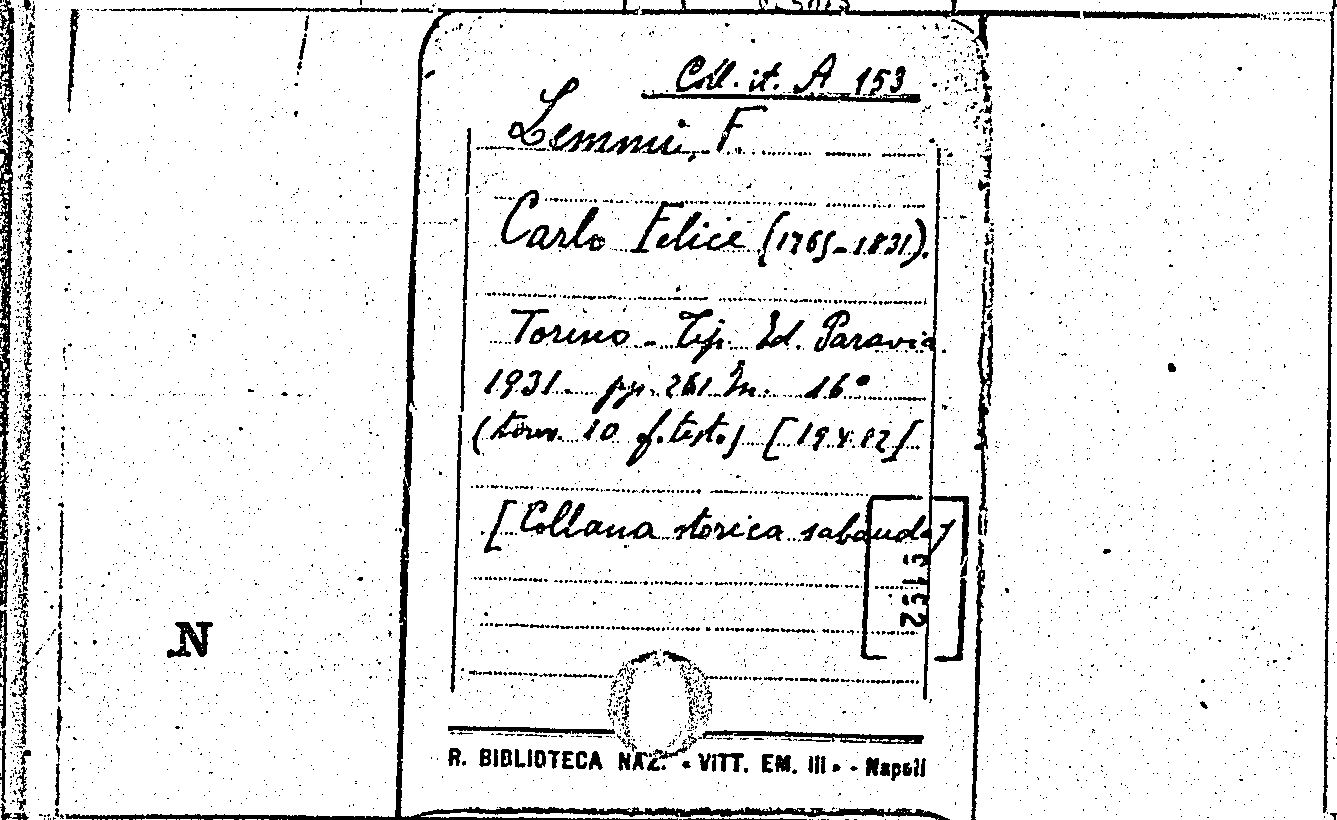 Coll. it. A 153
Lemmi, F.
Carlo Felice (1765-1831).
Torino - Tip. Ed. Paravia
1931. pp. 261 In. 16°
(tav. 10 f. testo) [19482]
[Collana storica sabauda]
N
R. BIBLIOTECA NAZ. « VITT. EM. III » - Napoli